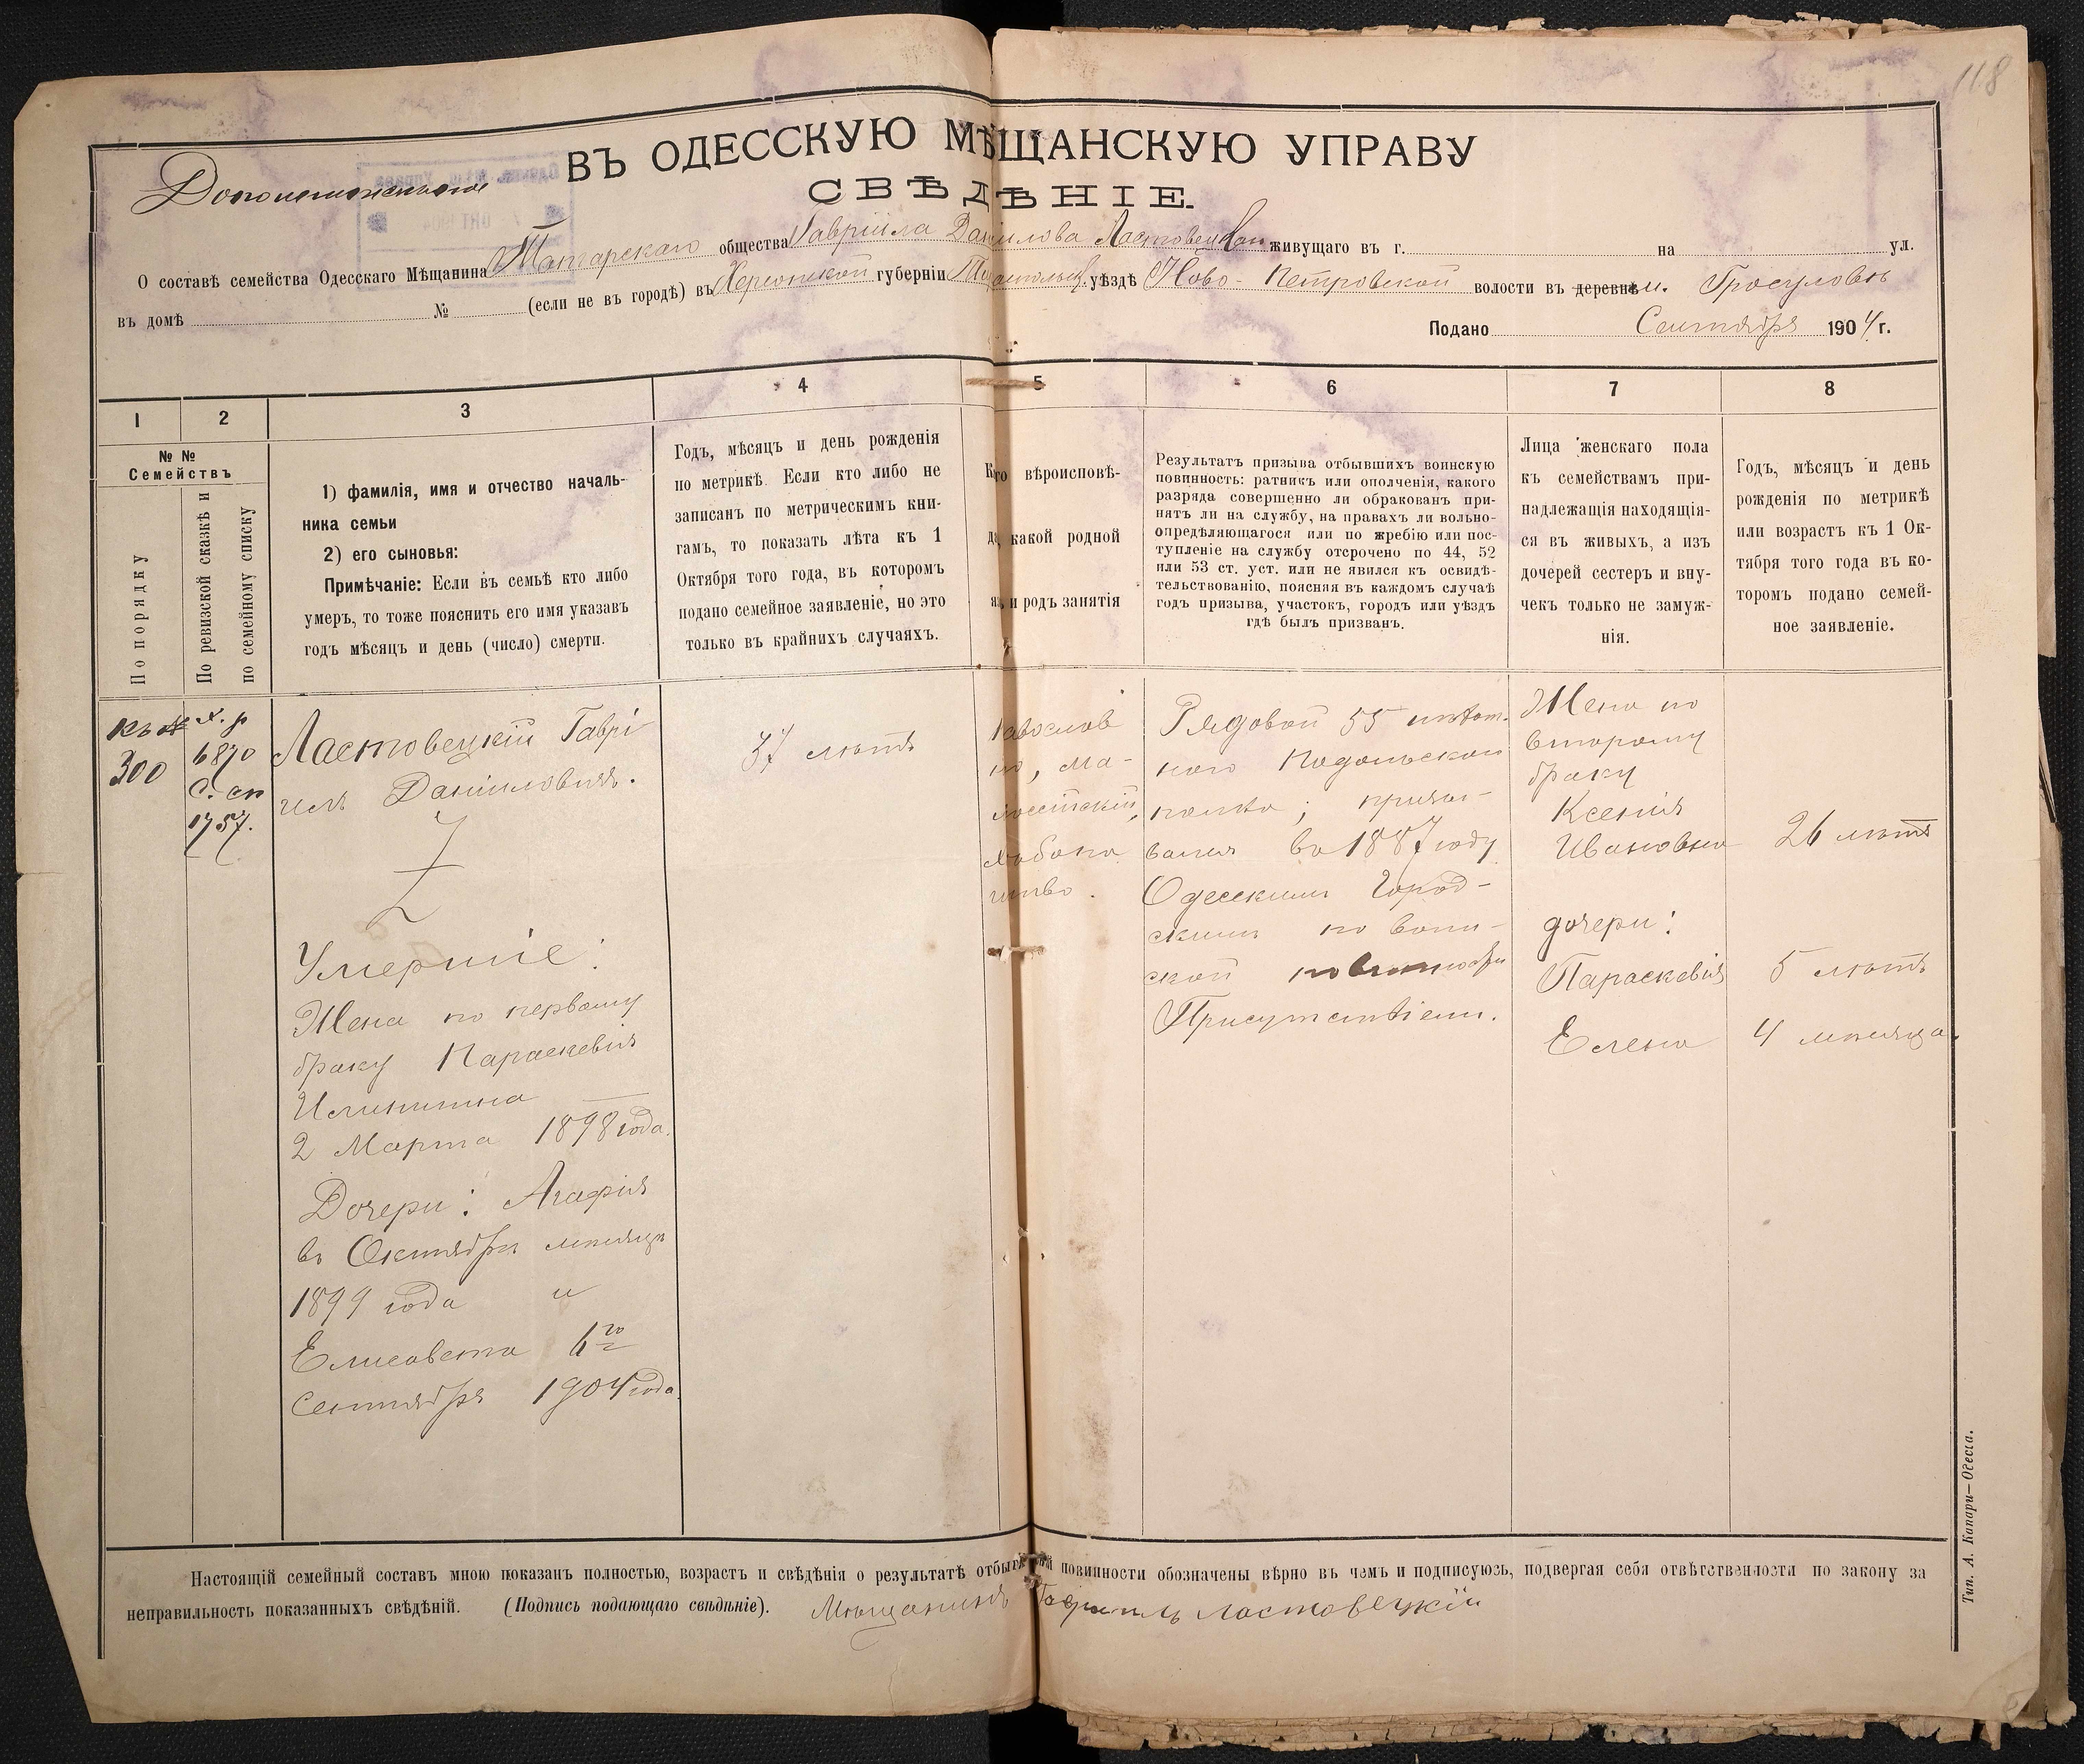 118
ВЪ ОДЕССКУЮ МѢЩАНСКУЮ УПРАВУ
Дополнительное
СВѢДѢНІЕ.
О составѣ семейства Одесскаго Мѣщанина Татарскаго общества Гавріила Данилова Ластовецкаго живущаго въ г. на ул.
въ домѣ № (если не въ городѣ) въ Херсонской губерніи Тираспольск. уѣздѣ Ново-Петровской волости въ деревнѣ м. Гросуловѣ
Подано Сентября 1904 г.
1 2 3 4 5 6 7 8
№ №
Семействъ
По порядку
По ревизской сказкѣ и
по семейному списку
1) фамилія, имя и отчество началь-
ника семьи
2) его сыновья:
Примѣчаніе: Если въ семьѣ кто либо
умеръ, то тоже пояснить его имя указавъ
годъ мѣсяцъ и день (число) смерти.
Годъ, мѣсяцъ и день рожденія
по метрикѣ. Если кто либо не
записанъ по метрическимъ кни-
гамъ, то показать лѣта къ 1
Октября того года, въ которомъ
подано семейное заявленіе, но это
только въ крайнихъ случаяхъ.
вѣроисповѣ-
какой родной
и родъ занятія
Результатъ призыва отбывшихъ воинскую
повинность: ратникъ или ополченія, какого
разряда совершенно ли обракованъ при-
нятъ ли на службу, на правахъ ли вольно-
опредѣляющагося или по жребію или пос-
тупленіе на службу отсрочено по 44, 52
или 53 ст. уст. или не явился къ освидѣ-
тельствованію, поясняя въ каждомъ случаѣ
годъ призыва, участокъ, городъ или уѣздъ
гдѣ былъ призванъ.
Лица женскаго пола
къ семействамъ при-
надлежащія находящія-
ся въ живыхъ, а изъ
дочерей сестеръ и вну-
чекъ только не замуж-
нія.
Годъ, мѣсяцъ и день
рожденія по метрикѣ
или возрастъ къ 1 Ок-
тября того года въ ко-
торомъ подано семей-
ное заявленіе.
къ №
300
Х. р
6870
С. сп
1757.
Ластовецкій Гаврі
илъ Даніиловичъ.
Умершіе:
Жена по первому
браку Параскевія
Ильинишна
2 Марта 1898 года.
Дочери: Агафія
въ Октябрѣ мѣсяцѣ
1899 года и
Елисавета 6го
Сентября 1904 года.
37 лѣтъ
Рядовой 55 пѣхот-
наго Подольскаго
полка; призы-
вался въ 1887 году
Одесскимъ Город-
скимъ по воин-
ской повинности
Присутствіемъ.
Жена по
второму
браку
Ксенія
Ивановна 26 лѣтъ
дочери:
Параскевія 5 лѣтъ
Елена 4 мѣсяца.
Настоящій семейный составъ мною показанъ полностью, возрастъ и свѣдѣнія о результатѣ повинности обозначены вѣрно въ чемъ и подписуюсь, подвергая себя отвѣтственности по закону за
неправильность показанныхъ свѣдѣній. (Подпись подающаго свѣдѣніе). Мѣщанинъ Гавриилъ Ластовецкій
Тип. А. Капари—Одесса.